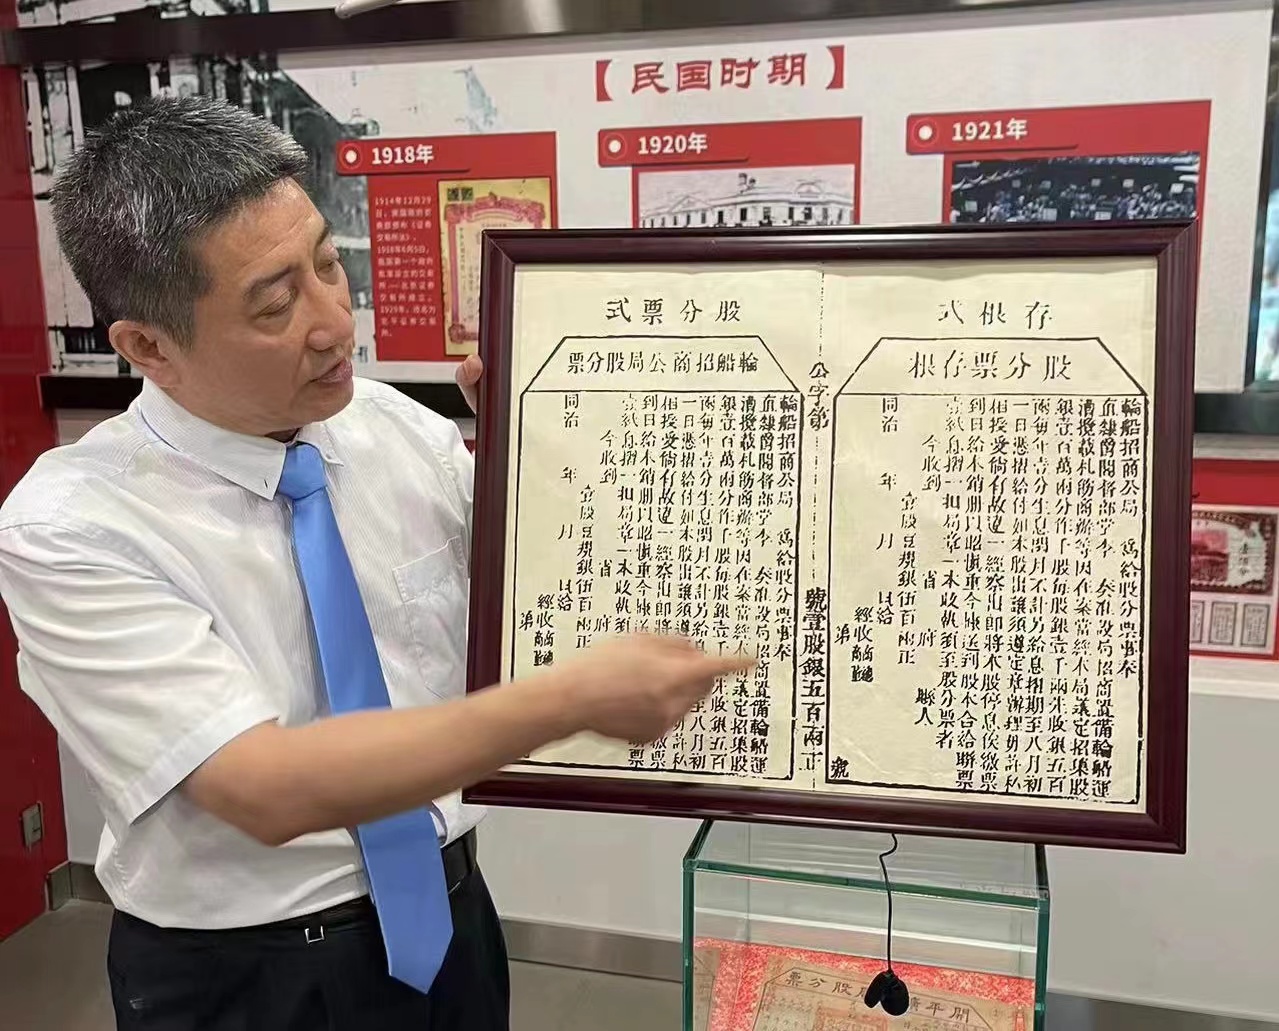 【民国时期】
1918年
1920年
1921年
1914年12月29
日，
1918年6月5日，
股分票式
存根式
股分票存根
輪船招商公局　爲給股分票事奉
直隸爵閣督部堂李　奏准設局招商置備輪船運
漕攬載札飭商辦等因在案當經本局議定招集股
銀壹百萬兩分作千股每股銀壹千兩先收銀五百
兩每年壹分生息閏月不計另給息摺期至八月初
一日憑摺給付如本股出讓須遵定章辦理毋許私
相授受倘有故違一經察出卽將本股停息俟繳票
到日給本銷册以昭愼重今　送到股本合給聯票
壹紙息摺一扣局章一本收執須至股分票者
今收到　省　府　縣人
股豆規銀伍百兩正
同治　年　月　日給
經收商總
第　號
公字第　號壹股銀五百兩正
輪船招商公局股分票
輪船招商公局　爲給股分票事奉
直隸爵閣督部堂李　奏准設局招商置備輪船運
漕攬載札飭商辦等因在案當經本　議定招集股
銀壹百萬兩分作千股每股銀壹千兩先收銀五百
兩每年壹分生息閏月不計另給息　至八月初
一日憑摺給付如本股出讓須遵　毋許私
相授受倘有故違一經察出卽將　繳票
到日給本銷册以昭愼重今　送　聯票
壹紙息摺一扣局章一本收執須
今收到　省　府
股豆規銀伍百兩正
同治　年　月　日給
經收商總
第
股分票
開平